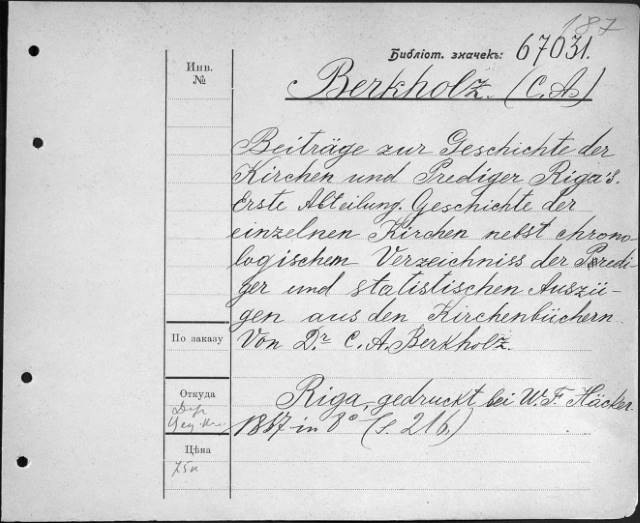 187
Библіот. значекъ: 67031.
Инв.
№
Berkholz. (C. A.)
Beiträge zur Geschichte der
Kirchen und Prediger Riga's.
Erste Abteilung. Geschichte der
einzelnen Kirchen nebst chrono-
logischem Verzeichniss der Predi-
ger und statistischen Auszü-
gen aus den Kirchenbüchern
По заказу
Von Dr. C. A. Berkholz.
Откуда
Riga, gedruckt bei W. F. Häcker.
1867 in 8° (S. 216.)
Цѣна
75к